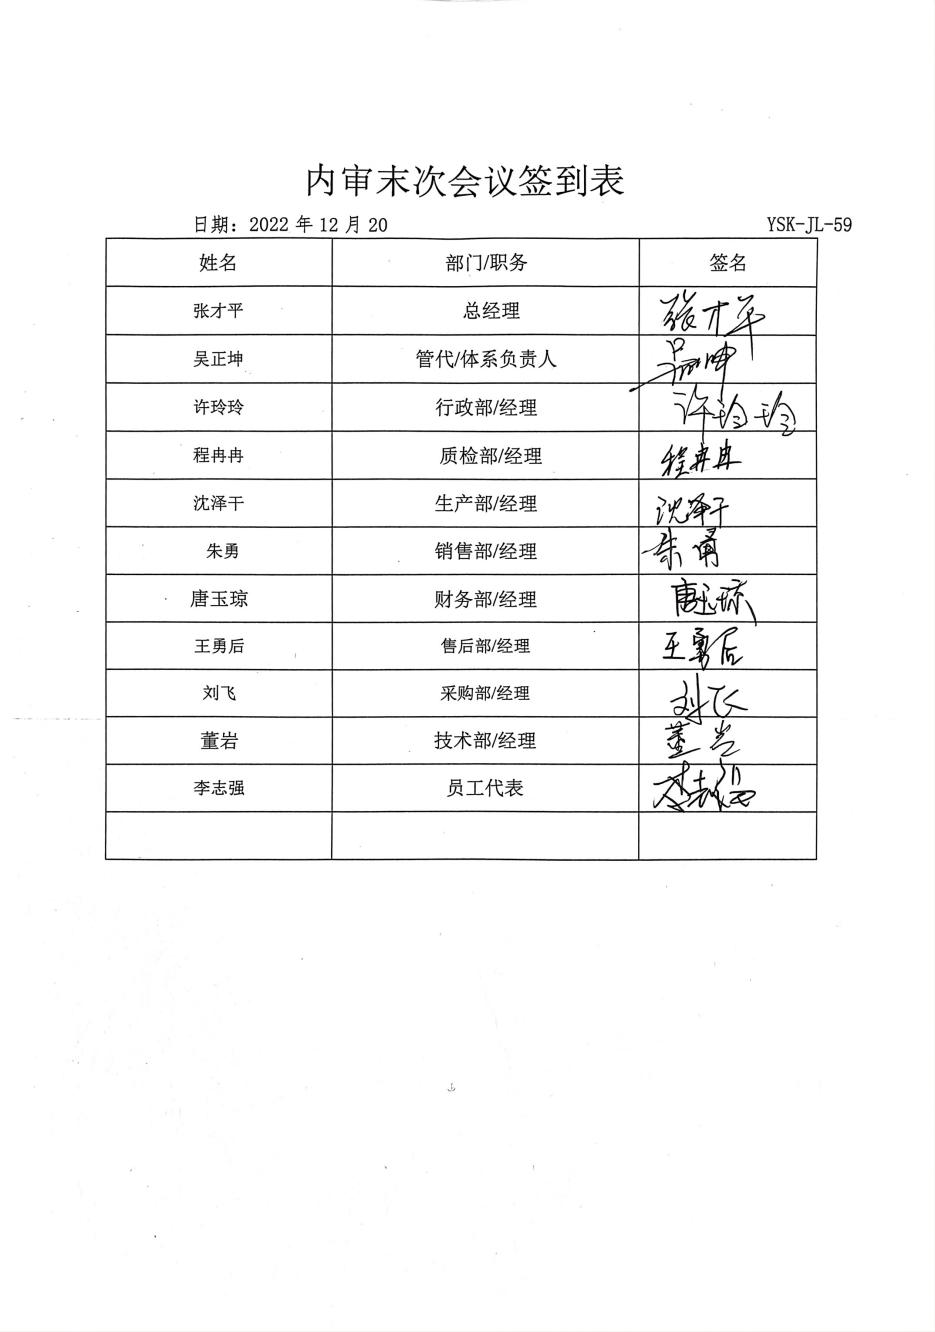 内审末次会议签到表
日期：2022 年 12 月 20 YSK-JL-59
姓名 部门/职务 签名
张才平 总经理 张才平
吴正坤 管代/体系负责人 吴正坤
许玲玲 行政部/经理 许玲玲
程冉冉 质检部/经理 程冉冉
沈泽干 生产部/经理 沈泽干
朱勇 销售部/经理 朱勇
唐玉琼 财务部/经理 唐玉琼
王勇后 售后部/经理 王勇后
刘飞 采购部/经理 刘飞
董岩 技术部/经理 董岩
李志强 员工代表 李志强